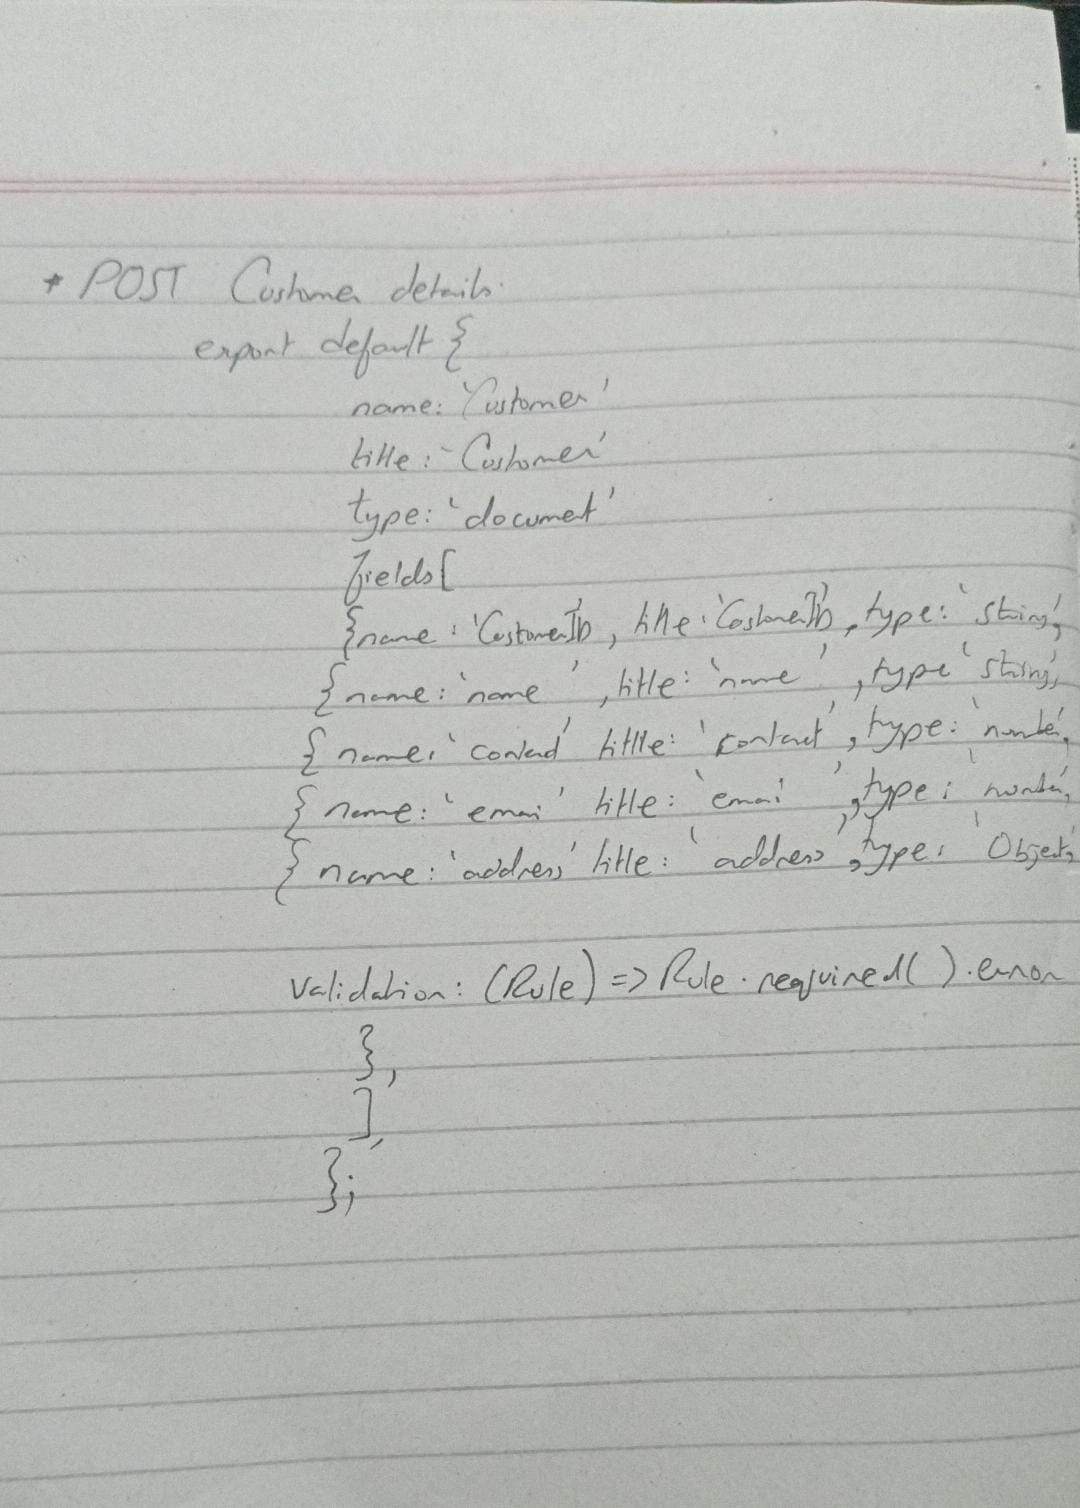 * POST Customer details.
export default {
name: 'Customer'
title: 'Customer'
type: 'documet'
fields[
{name: 'CustomerID', title: 'CustomerID', type: 'string',
{name: 'name', title: 'name', type 'string',
{name: 'contact' titlle: 'contact', type: 'number',
{name: 'emai' title: 'emai', type: 'number',
{name: 'address' title: 'address', type: 'Object',
validation: (Rule) => Rule.required().error
},
],
};